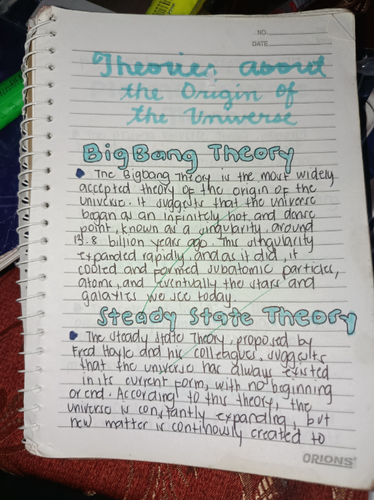 NO.
DATE
Theories about
the Origin of
the Universe
Big Bang Theory
The Bigbang Theory is the most widely
accepted theory of the origin of the
universe. It suggests that the universe
began as an infinitely hot and dense
point, known as a singularity, around
13.8 billion years ago. This singularity
expanded rapidly and as it did, it
cooled and formed subatomic particles,
atoms, and eventually the stars and
galaxies we see today.
Steady State Theory
The Steady State Theory, proposed by
Fred Hoyle and his colleagues, suggests
that the universe has always existed
in its current form, with no beginning
or end. According to this theory, the
universe is constantly expanding, but
new matter is continously created to
ORIONS